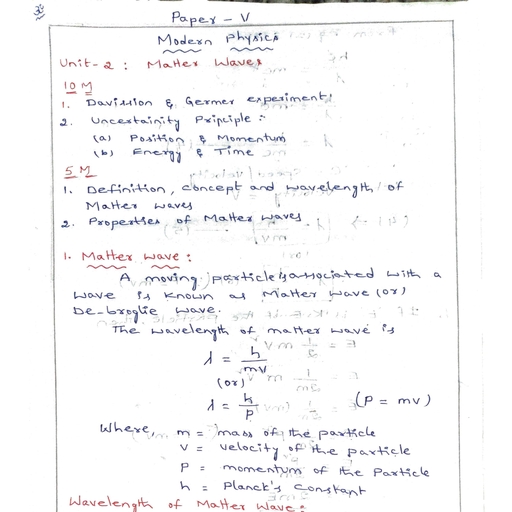 Paper - V
Modern Physics
Unit-2 : Matter Waves
10 M
1. Davission & Germer experiment
2. Uncertainity Principle :
(a) Position & Momentum
(b) Energy & Time
5 M
1. Definition, concept and wavelength of
Matter waves
2. Properties of Matter waves.
1. Matter wave :
A moving particle is associated with a
wave is known as Matter wave (or)
De-broglie wave.
The wavelength of matter wave is
λ = h/mv
(or)
λ = h/p (P = mv)
Where, m = mass of the particle
V = velocity of the particle
P = momentum of the Particle
h = Planck's Constant
Wavelength of Matter Wave :